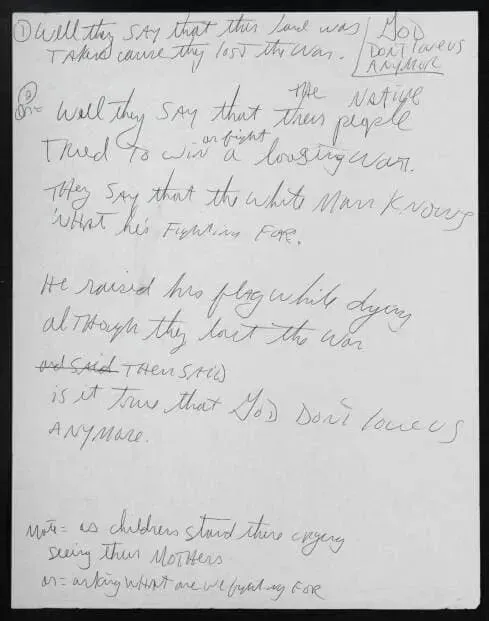 ① Well they SAY that this land was
TAKEN cause they lost the War.
GOD
DON'T love us
ANYMORE
②
or= Well they SAY that their people
THE NATIVE
Tried to win a loosing War.
or fight
They SAY that the white Man KNOWS
WHAT he's FIGHTING FOR.
He raised his flag while dying
alTHough they lost the War
and said THEN SAID
is it True that GOD DON'T love us
ANYMORE.
Note= as children stand there crying
seeing their MOTHERS
or= asking WHAT are we fighting FOR